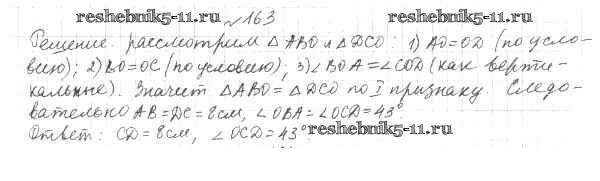 www.reshebnik5-11.ru №163
Решение. рассмотрим △ ABO и △ DCO: 1) AO=OD (по усло-
вию); 2) BO=OC (по условию); 3) ∠BOA = ∠COD (как верти-
кальные). Значит △ABO = △DCO по I признаку. Следо-
вательно AB=DC=8см, ∠OBA=∠OCD=43°
Ответ: CD=8см, ∠OCD=43° www.reshebnik5-11.ru